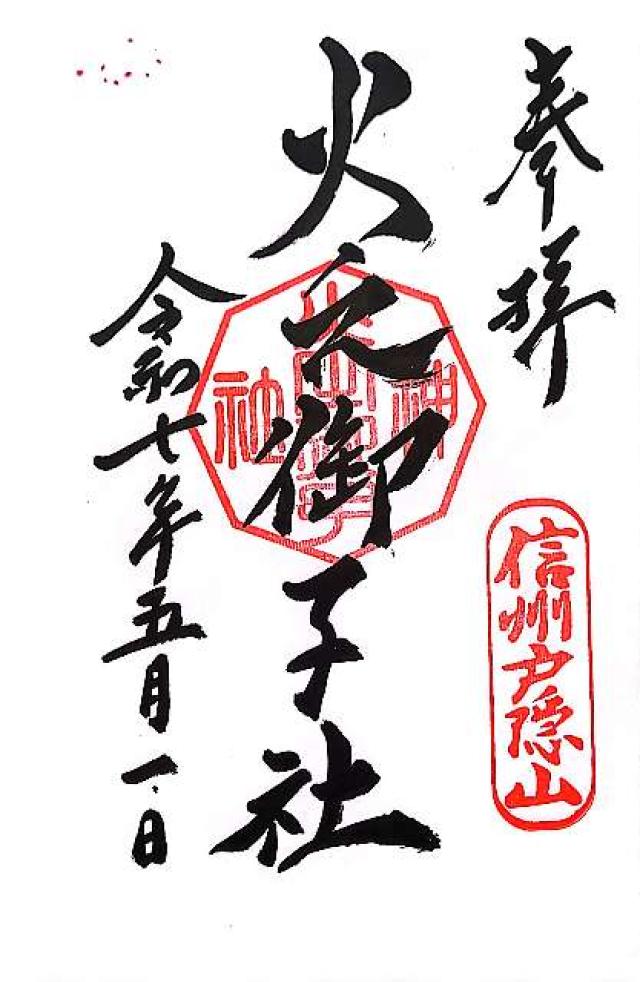 奉拝
信州戸隠山
火之御子社
神社
令和七年五月一日